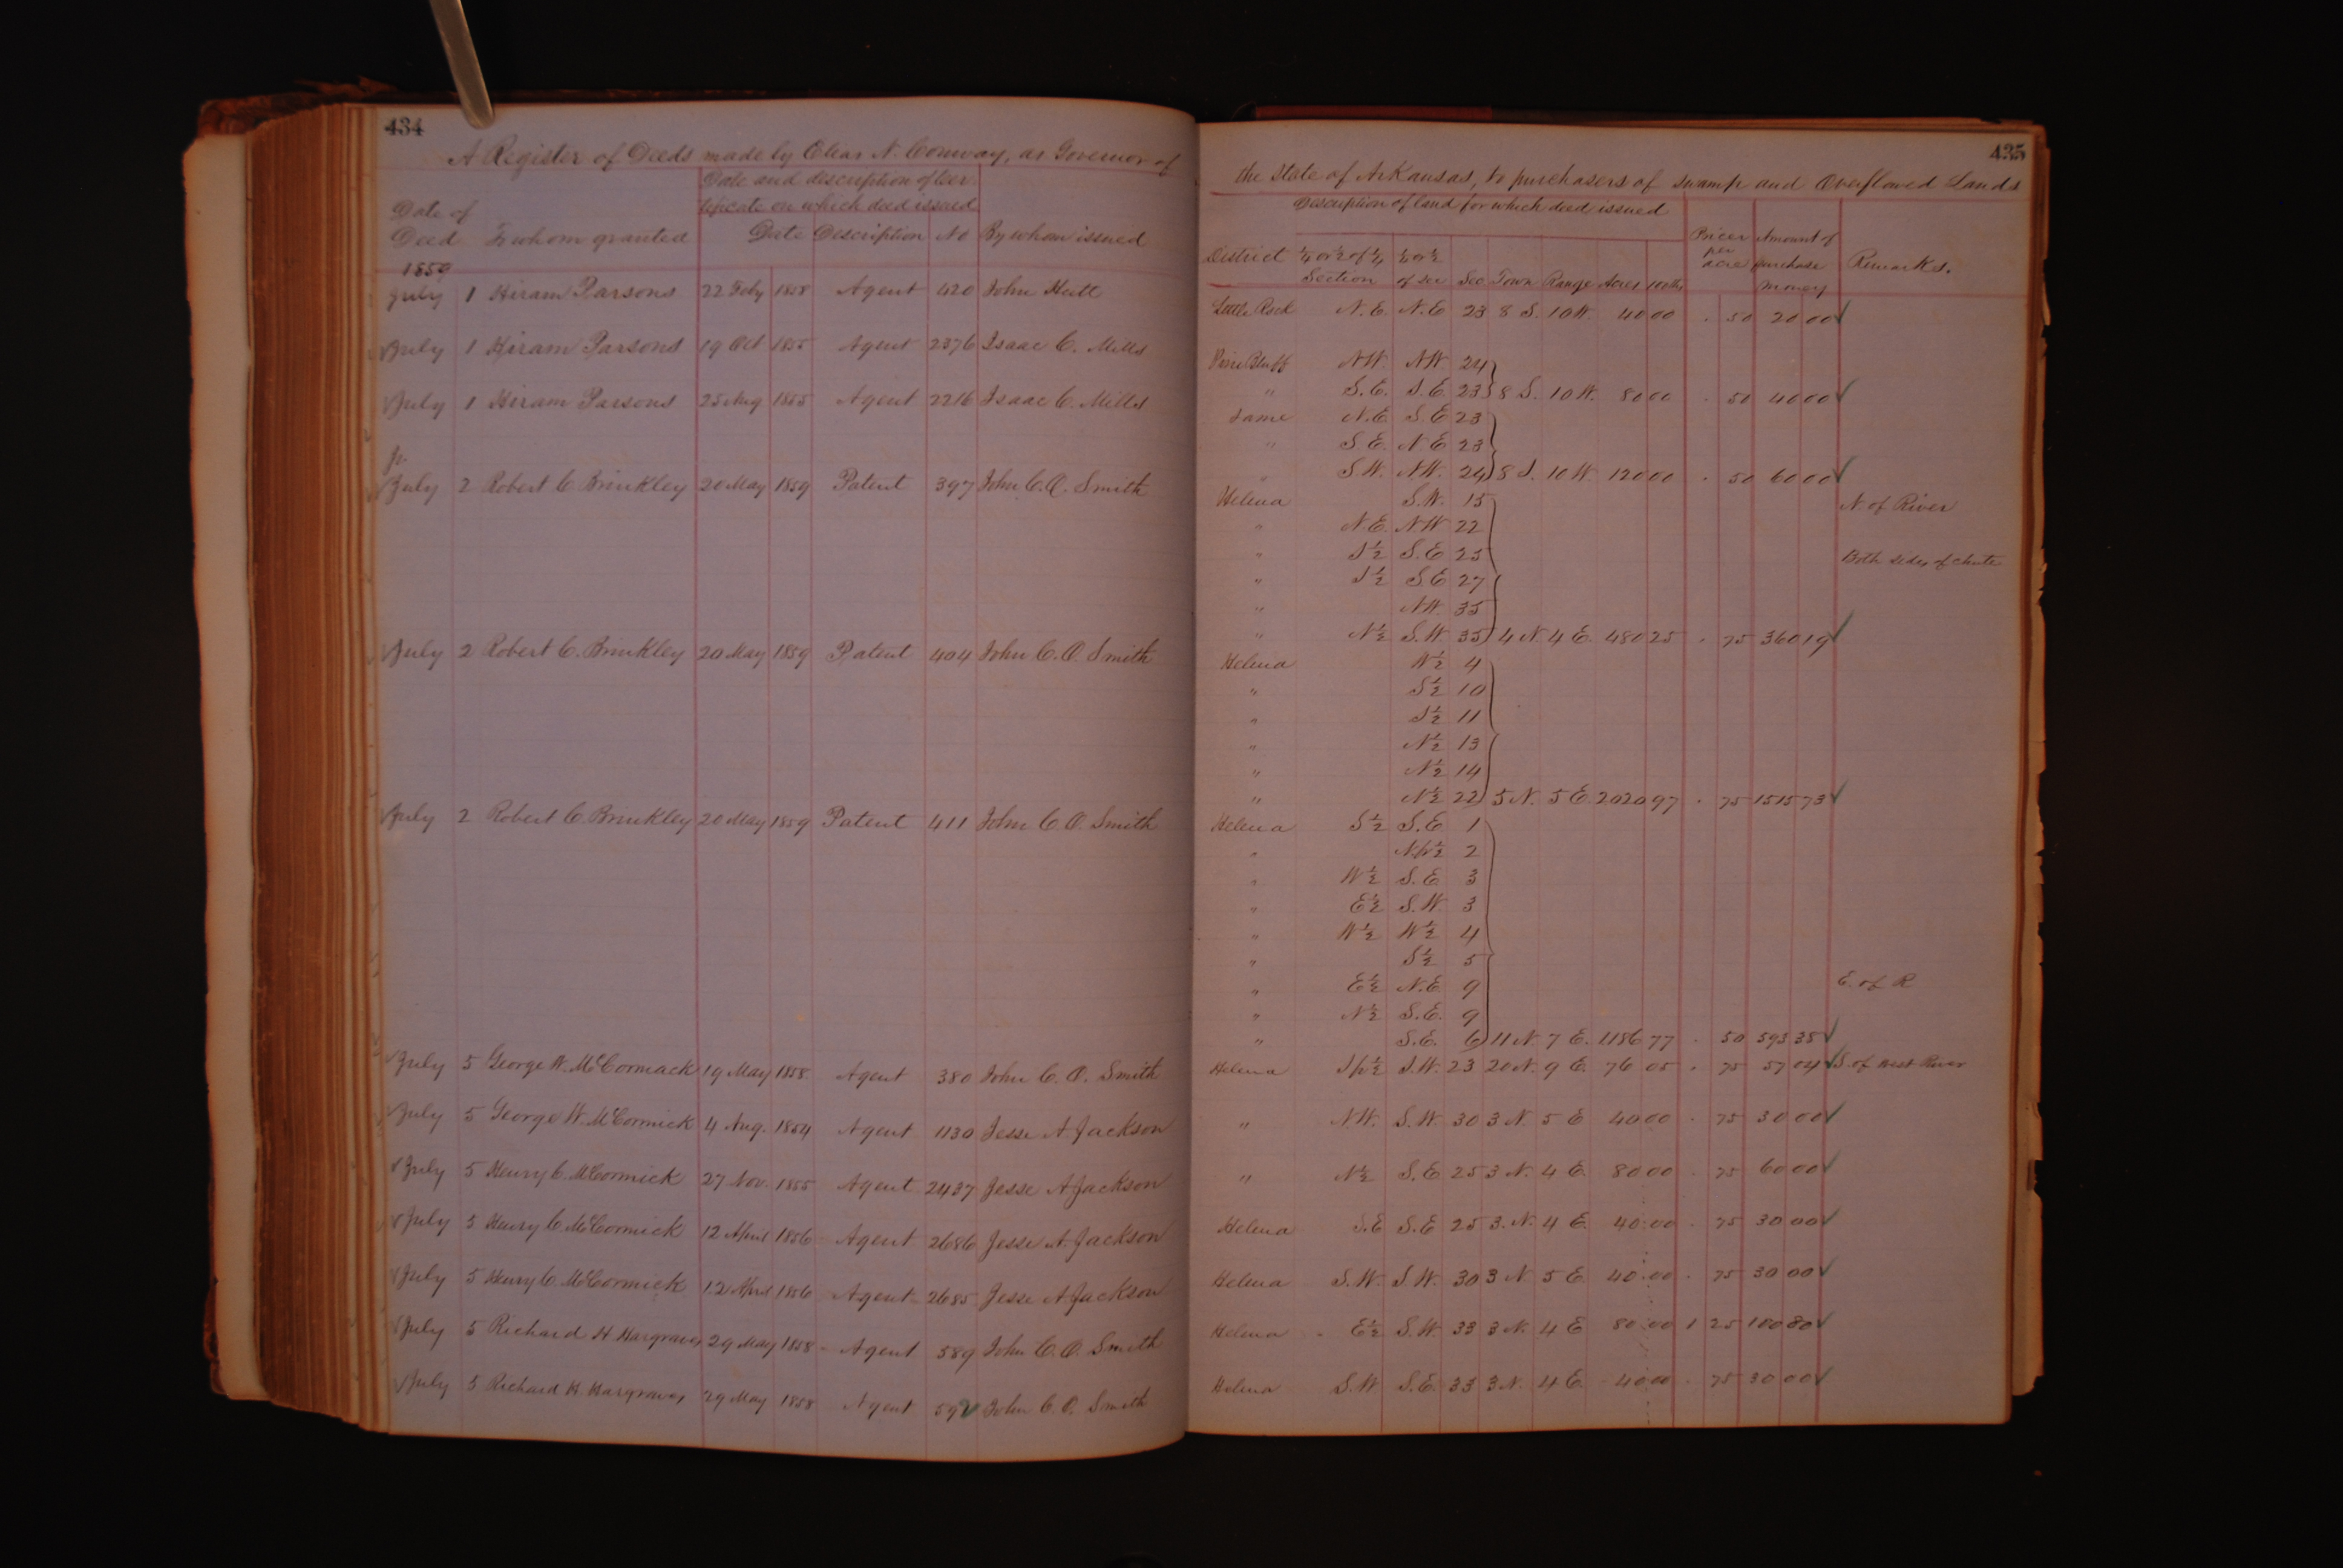 434
A Register of Deeds made by Elias N. Conway, as Governor of
Date and description of cer-
tificate on which deed issued
Date of
Deed To whom granted Date Description No By whom issued
1859
July 1 Hiram Parsons 22 Feby 1858 Agent 420 John Hutt
July 1 Hiram Parsons 19 Oct 1855 Agent 2376 Isaac C. Mills
July 1 Hiram Parsons 25 Aug 1855 Agent 2216 Isaac C. Mills
Jr.
July 2 Robert C. Brinkley 20 May 1859 Patent 397 John C. O. Smith
July 2 Robert C. Brinkley 20 May 1859 Patent 404 John C. O. Smith
July 2 Robert C. Brinkley 20 May 1859 Patent 411 John C. O. Smith
July 5 George W. McCormack 19 May 1858 Agent 380 John C. O. Smith
July 5 George W. McCormick 4 Aug. 1854 Agent 1130 Jesse A. Jackson
July 5 Henry C. McCormick 27 Nov. 1855 Agent 2437 Jesse A Jackson
July 5 Henry C. McCormick 12 April 1856 Agent 2686 Jesse A. Jackson
July 5 Henry C. McCormick 12 April 1856 Agent 2685 Jesse A Jackson
July 5 Richard H. Hargraves 29 May 1858 Agent 589 John C. O. Smith
July 5 Richard H. Hargraves 29 May 1858 Agent 59 John C. O. Smith
435
the State of Arkansas, to purchasers of swamp and Overflowed Lands
Description of land for which deed issued
District ¼ or ½ of ¼ Section ¼ or ½ of sec Sec Town Range Acres 100ths Price per acre Amount of purchase money Remarks.
Little Rock N.E. N.E 23 8 S. 10 W. 40 00 . 50 20 00 ✓
Pine Bluff N.W. N.W. 24
" S.E. S.E. 23 8 S. 10 W. 80 00 . 50 40 00 ✓
Same N.E S.E 23
" S.E. N.E 23
" S.W. N.W. 24 8 S. 10 W 120 00 . 50 60 00 ✓
Helena S.W. 15 N of River
" N.E. N.W 22
" S½ S.E 25 Both sides of chute
" S½ S.E 27
" N.W. 35
" N½ S.W. 35 4 N. 4 E. 480 25 . 75 360 19 ✓
Helena W½ 4
" S½ 10
" S½ 11
" N½ 13
" N½ 14
" N½ 22 5 N. 5 E 2020 97 . 75 1515 73 ✓
Helena S½ S.E 1
" N.fr½ 2
" W½ S.E 3
" E½ S.W. 3
" W½ W½ 4
" S½ 5
" E½ N.E. 9 E. of R
" N½ S.E. 9
" S.E. 6 11 N. 7 E. 1186 77 . 50 593 35 ✓
Helena S.fr½ S.W. 23 20 N. 9 E. 76 05 . 75 57 04 ✓ S. of West River
" N.W. S.W. 30 3 N. 5 E 40 00 . 75 30 00 ✓
" N½ S.E 25 3 N. 4 E. 80 00 . 75 60 00 ✓
Helena S.E S.E 25 3. N. 4 E. 40 00 . 75 30 00 ✓
Helena S.W. S.W. 30 3 N. 5 E. 40 00 . 75 30 00 ✓
Helena E½ S.W 33 3 N. 4 E 80 00 1 25 100 80 ✓
Helena S.W S.E. 33 3 N. 4 E. 40 00 . 75 30 00 ✓